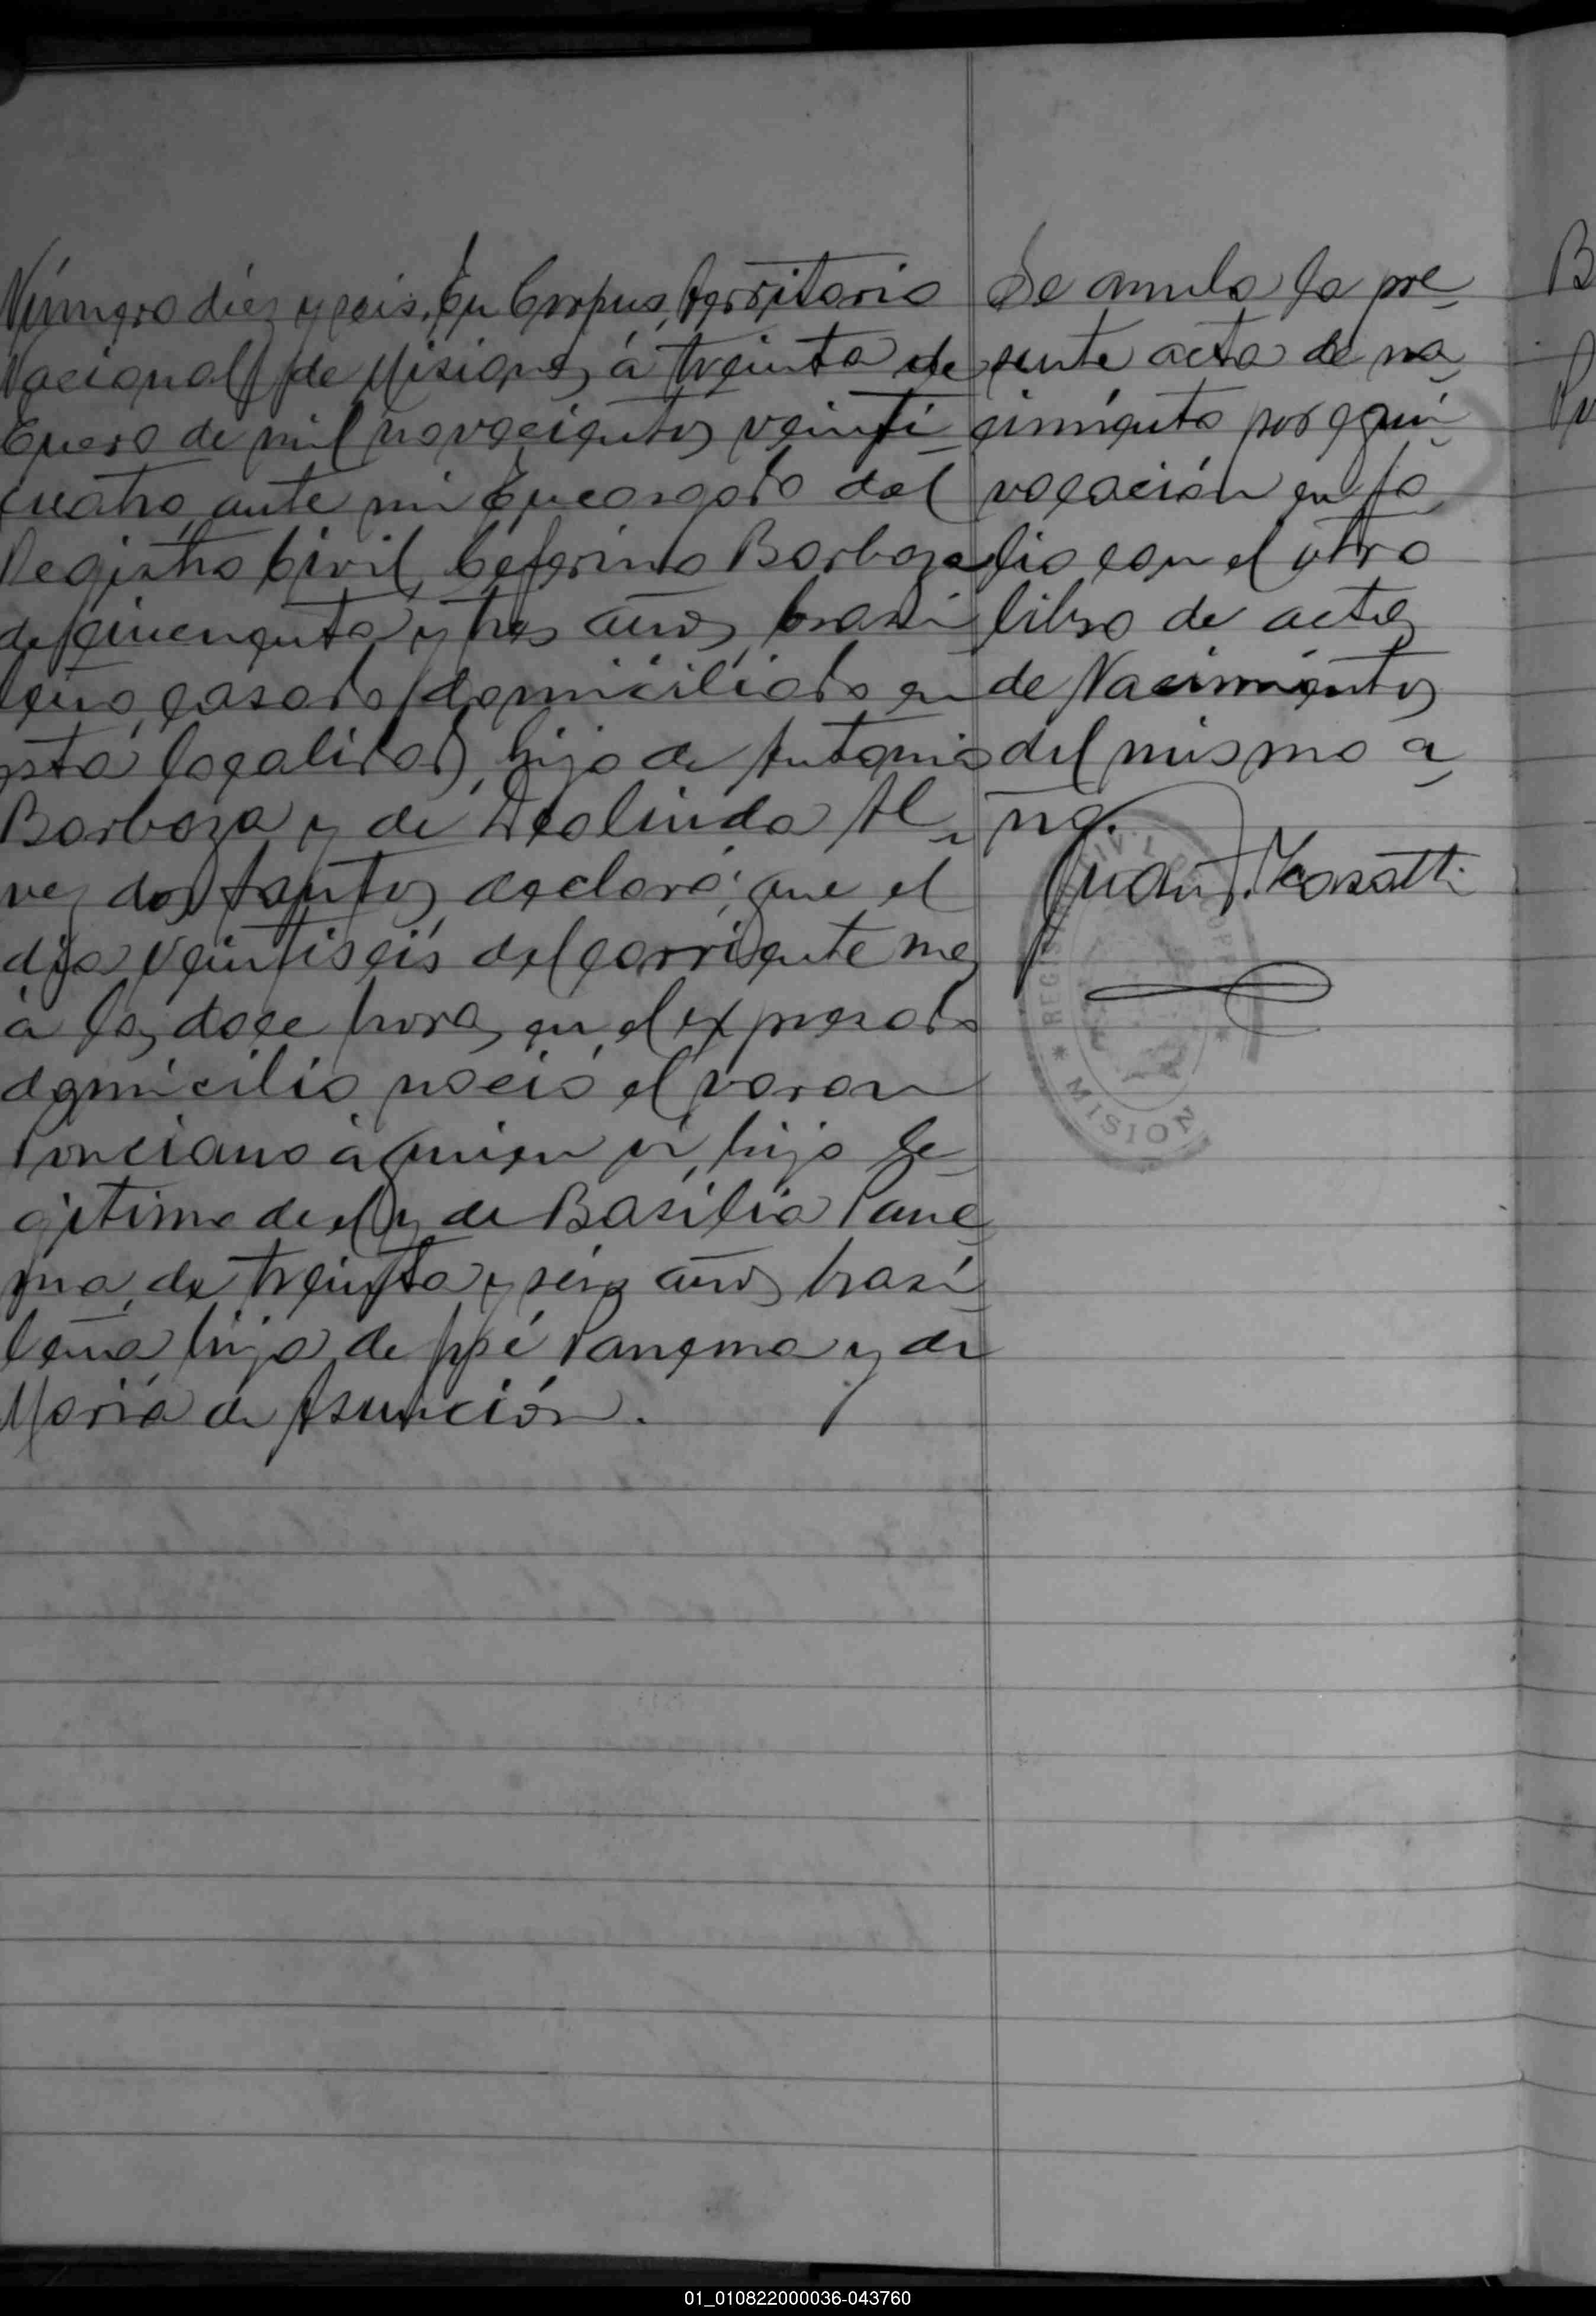 Número diez y seis. En Corpus, Territorio
Nacional de Misiones, á treinta de
Enero de mil novecientos veinti
cuatro, ante mi Encargado del
Registro Civil, Ceferino Barboza
de cincuenta y tres años, brasi
leño, casado, domiciliado en
esta localidad, hijo de Antonio
Barboza y de Deolinda Al-
vez dos Santos, declaró: que el
dia veintiseis del corriente mes
á las doce horas, en el expresado
domicilio nació el varon
Ponciano á quien vi, hijo le-
gitimo de el y de Basilia Pane-
ma, de treinta y seis años, brasi-
leña, hija de José Panema y de
Maria de Asunción.
Se anula la pre-
sente acta de na-
cimiento por equi-
vocación en fo-
lio con el otro
libro de actas
de Nacimientos
del mismo a-
ño.
REGIS CIVIL
* MISION *
B
01_010822000036-043760